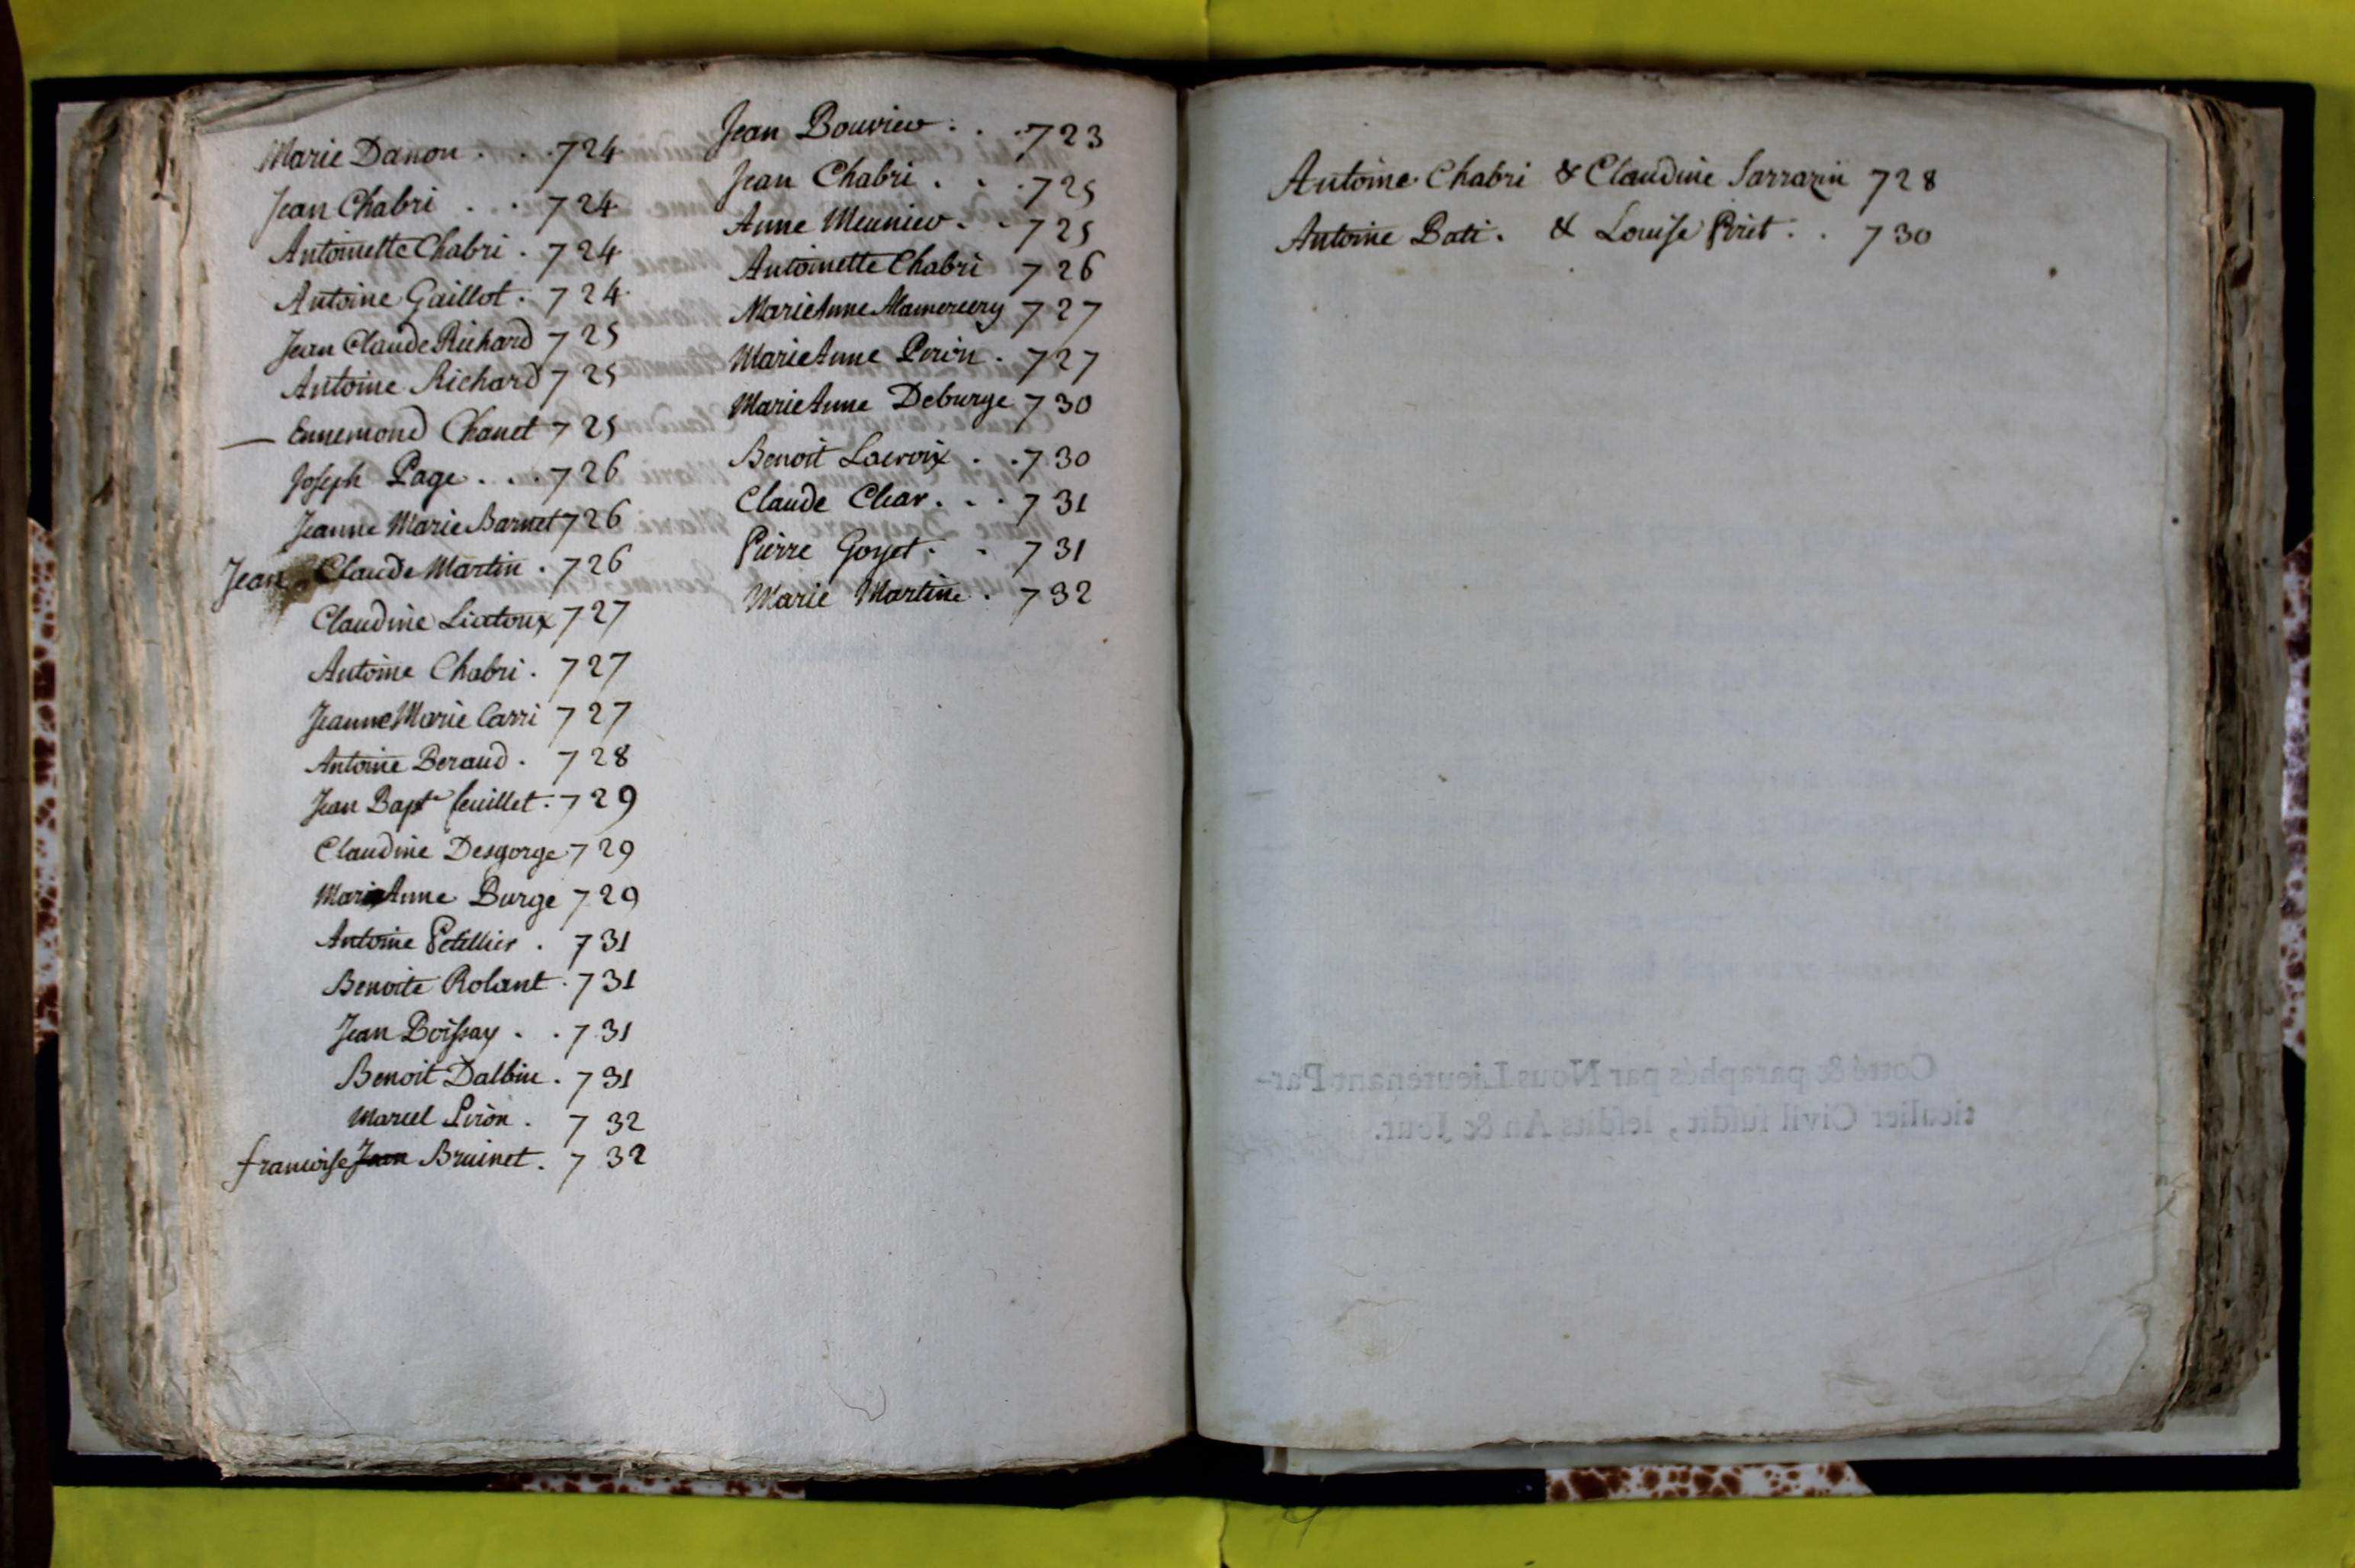 Marie Danon . . . 724
Jean Chabri . . 724
Antoinette Chabri . 724
Antoine Gaillot . 724
Jean Claude Richard 725
Antoine Richard 725
— Ennemond Chanet 725
Joseph Page . . . 726
Jeanne Marie Barnet 726
Jean Claude Martin . 726
Claudine Liatoux 727
Antoine Chabri . 727
Jeanne Marie Carri 727
Antoine Beraud . 728
Jean Bapte feuillet . 729
Claudine Desgorge 729
Marie Anne Burge 729
Antoine Petillier . 731
Benoite Rolant . 731
Jean Boissay . . 731
Benoit Dalbin . 731
Marcel Piron . 732
francoise Jean Bruinet . 732
Jean Bouvier . . . 723
Jean Chabri . . . 725
Anne Meunier . . 725
Antoinette Chabri 726
Marie Anne 727
Marie Anne Peron . 727
Marie Anne Deburge 730
Benoit Lacroix . . 730
Claude Char . . . 731
Pierre Goyet . . 731
Marie Martine . 732
Antoine Chabri & Claudine Sarrazin 728
Antoine Bati . & Louise Piret . . 730
Cotté & paraphés par Nous Lieutenant Par-
ticulier Civil susdit, lesdits An & Jour.